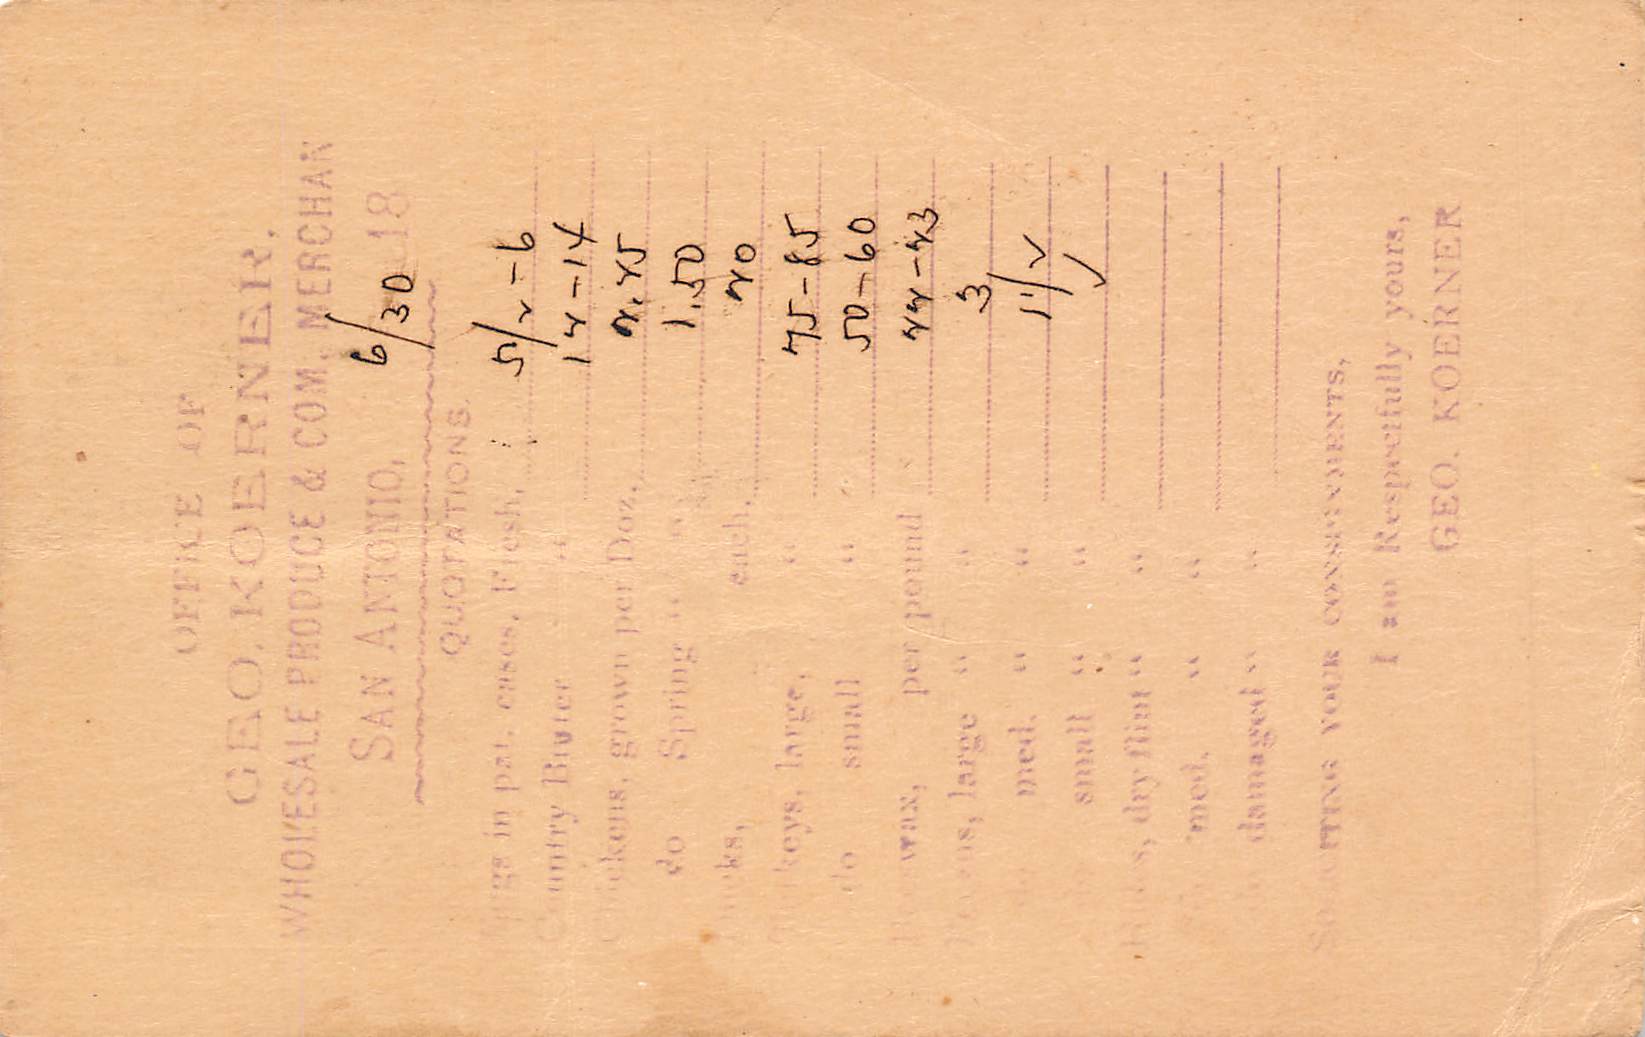 OFFICE OF
GEO. KOERNER,
WHOLESALE PRODUCE & COM. MERCHAN
SAN ANTONIO, 6/30 18
QUOTATIONS.
in pat. cases, Fresh, 5/2-6
Country Butter " 12-14
Chickens, grown per Doz. 2.25
do Spring " " 1.50
each, 20
Turkeys, large, " 75-85
do small " 50-60
wax, per pound 22-23
large " " 3
med. " " 1 1/2
small " " ✓
dry flint " "
med. " "
damaged " "
SOLICITING YOUR CONSIGNMENTS,
I am Respectfully yours,
GEO. KOERNER